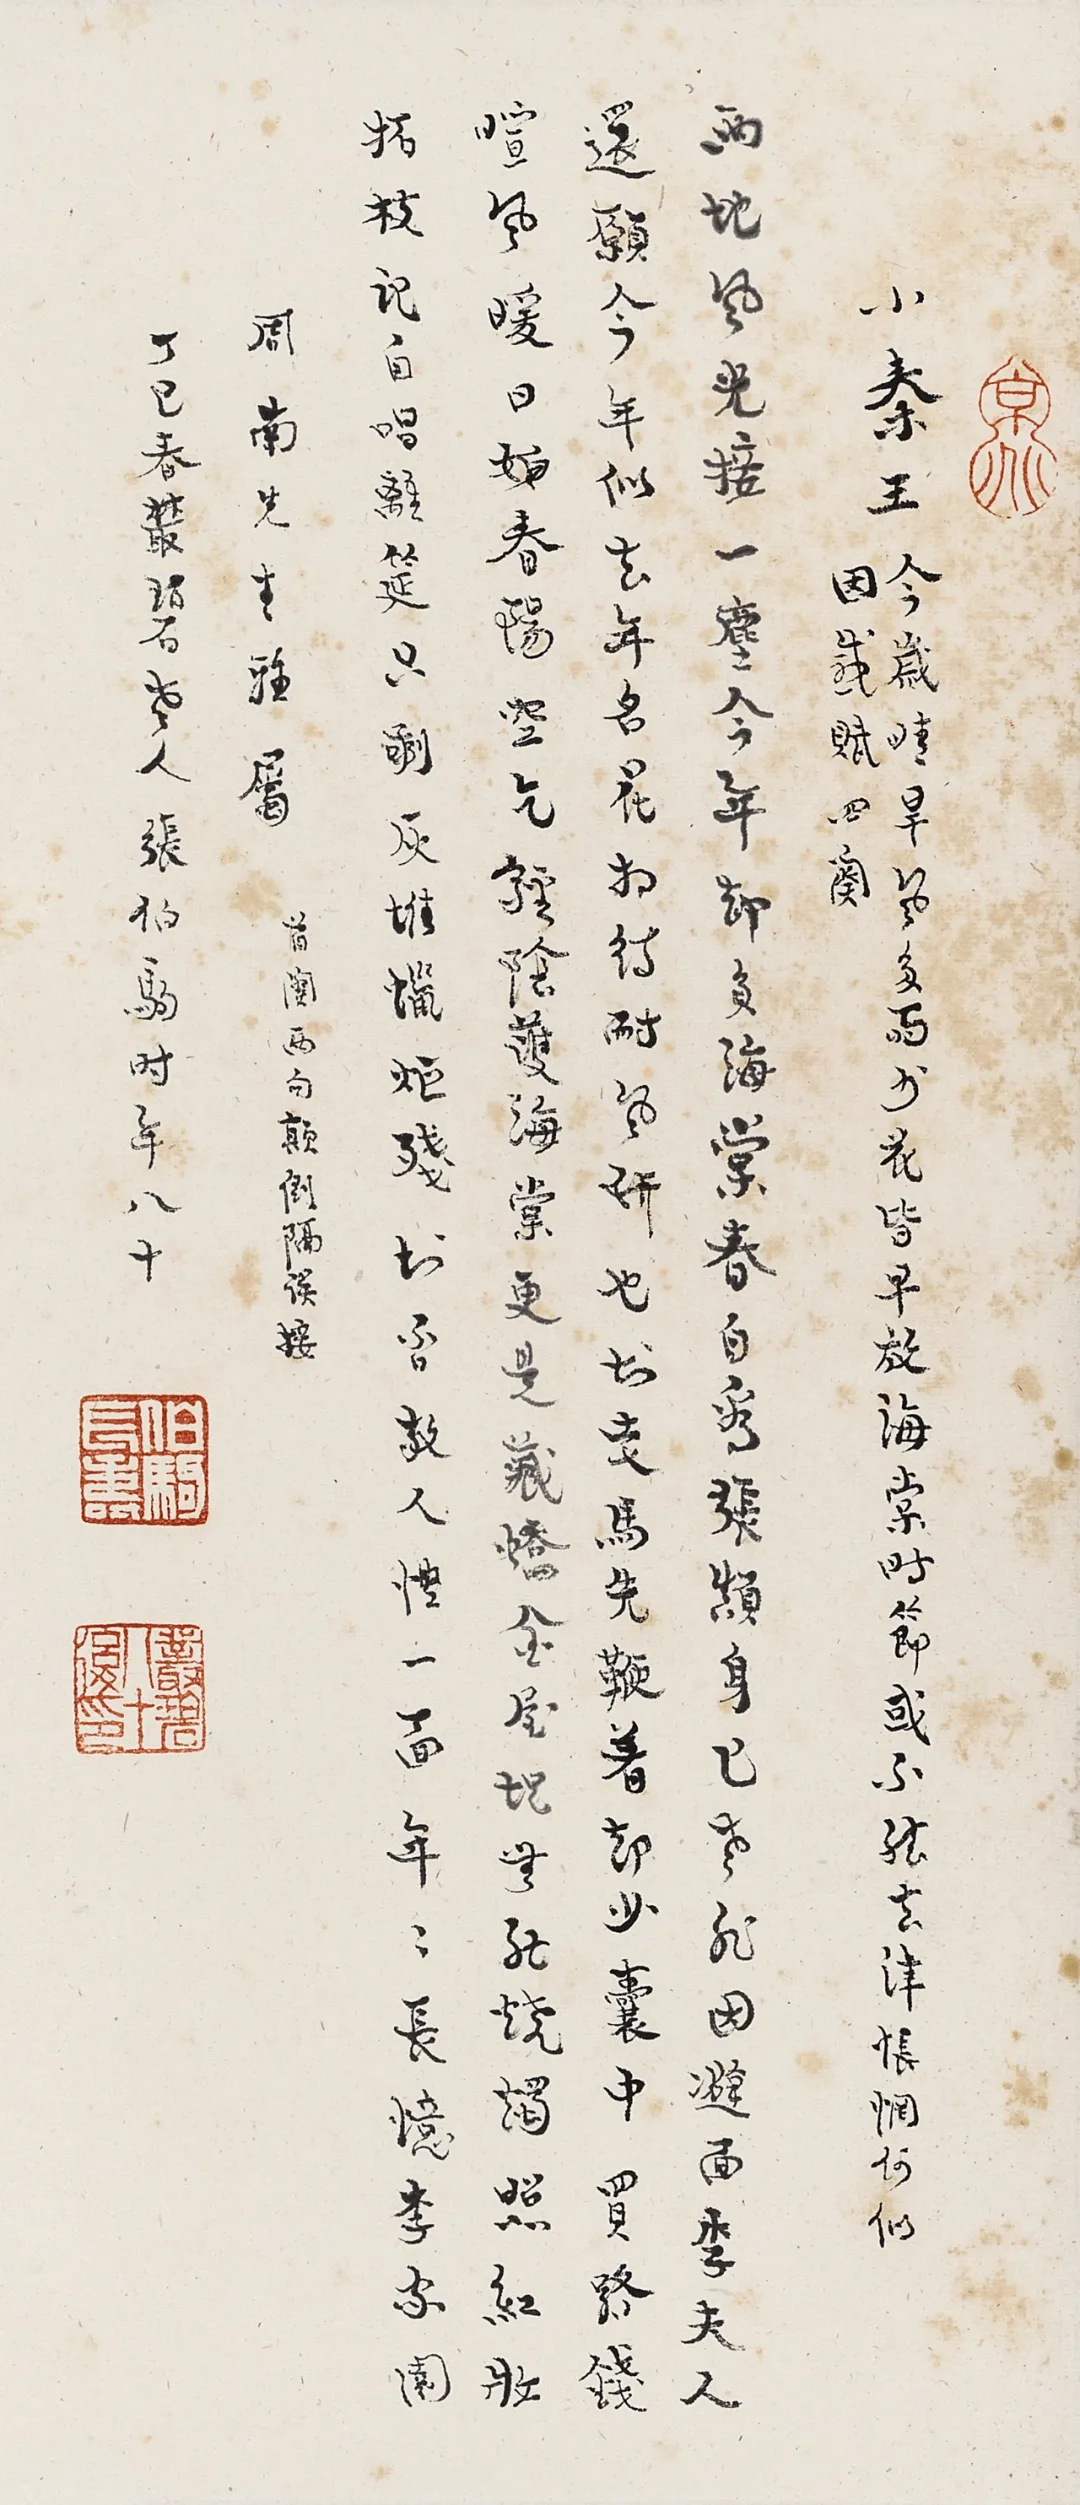 京兆
小秦王
今歲晴旱風多雨少花皆早放海棠時節或不能去津悵惘何似
因感賦四闋
兩地風光接一塵今年却負海棠春自看張頹身已老非因避面李夫人
還願今年似去年名花相待耐風妍也知走馬先鞭著却少囊中買路錢
暄風暖日始春陽空乞輕陰護海棠更是藏嬌金屋圮無能燒燭照紅妝
折枝記自唱離筵只剩灰堆蠟炬殘知否教人慳一面年〻長憶李家園
周南先生雅屬
首闋兩句顛倒隔誤接
丁巳春叢碧老人張伯駒時年八十
伯駒長壽
叢碧八十後印